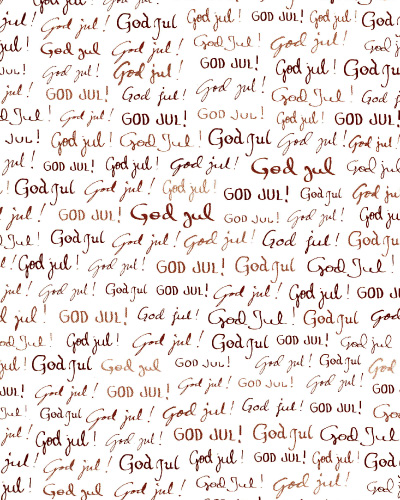 God jul! God jul! God jul
God jul! God jul! God jul GOD JUL! God jul! God jul!
God jul God jul! God jul! God Jul! God jul! God jul
JUL! God jul! God jul! GOD JUL! God jul! God jul
jul! GOD JUL! God jul! God jul! God Jul! God jul!
God jul! God jul! GOD JUL! GOD JUL! God jul! GOD JUL!
JUL! God jul! God Jul! God jul God jul! God jul!
jul! GOD JUL! God jul! God jul! God jul God jul
God jul God jul! God jul! GOD JUL! God jul God jul!
jul! GOD JUL! God jul GOD JUL! God jul! God jul!
God Jul! God jul God jul! God jul! God jul! God jul! God jul
jul! God jul! God jul! GOD JUL! God jul God Jul!
God jul! God jul! God jul GOD JUL! God jul! God jul! GOD JUL!
God jul! GOD JUL! God jul! God Jul! God jul! God
jul! God jul! God jul! God jul GOD JUL! God jul
jul! God jul God jul GOD JUL! God jul! God jul God
JUL! God jul! GOD JUL! God jul! GOD JUL! God jul! GOD
Jul! God jul God jul! God jul! God jul! GOD JUL! God
jul! God jul! God jul! GOD JUL! God jul God Jul!
jul! God jul! God jul! God jul! GOD JUL! God jul!
God jul! God jul GOD JUL! God jul! God jul